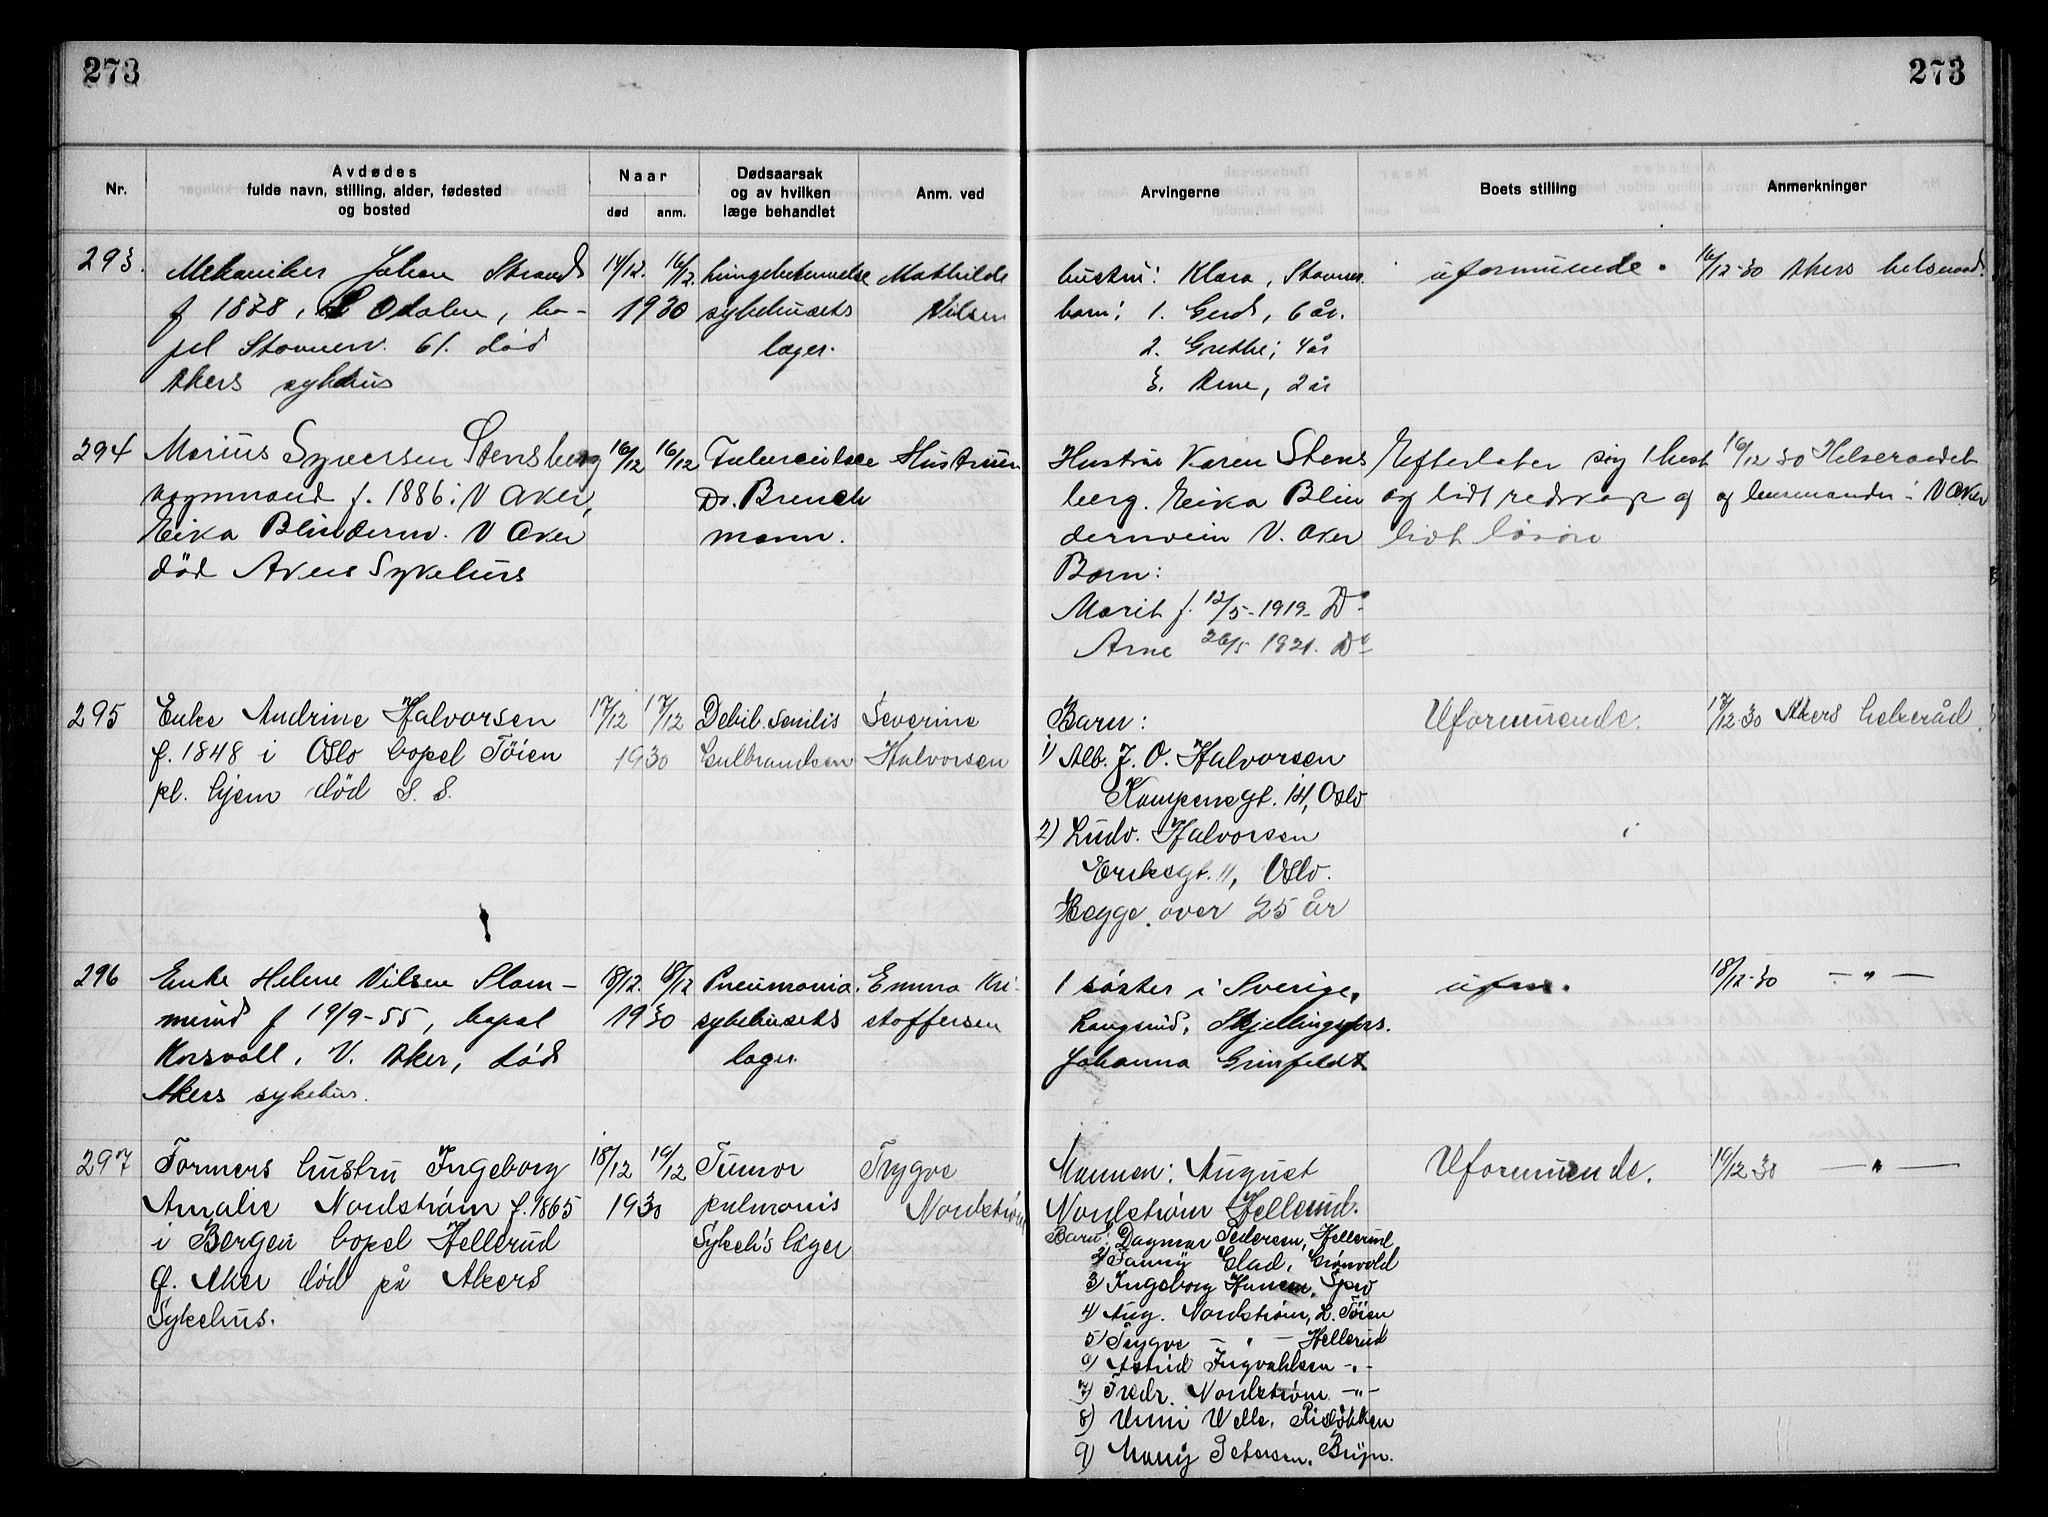 273
273
Nr.
Avdødes
fulde navn, stilling, alder, fødested
og bosted
Naar
død
anm.
Dødsaarsak
og av hvilken
læge behandlet
Anm. ved
Arvingerne
Boets stilling
Anmerkninger
293. Mekaniker Johan Strand 14/12. 16/12. lungebetennelse Mathilde
f 1878, Odalen, bo- 1930 sykehusets Nilsen
pel Stovnerv. 61. død læger.
Akers sykehus
hustru: Klara, Stovner. uformuende. 16/12-30 Akers helseraad.
barn: 1. Gerd, 6 år.
2. Grethe, 4 år
3. Arne, 2 år
294 Marius Syversen Stensberg 16/12 16/12 Tuberculose Hustruen
vognmand f. 1886 i V Aker,
Dr. Bruch
Eika Blindernv. V Aker mann.
død Akers Sykehus
Hustru Karen Stens Efterlater sig 1 hest 16/12 30 Helseraadet
berg. Eika Blin og lidt redskap og og lensmanden i V Aker
dernveien V. Aker lidt løsøre
Barn:
Marit f. 12/5-1919- Do
Arne 26/5 1921. Do
295 Enke Andrine Halvorsen 17/12 17/12 Debil. senilis Severine
f. 1848 i Oslo bopel Töien 1930 Gulbrandsen Halvorsen
pl. hjem död S. S.
Barn: Uformuende. 17/12-30 Akers helseråd
1) Alb. J. O. Halvorsen
Kampensgt. 14, Oslo
2) Ludv. Halvorsen
Eriksgt. 11, Oslo.
Begge over 25 år
296 Enke Helene Nilsen Slam- 18/12. 18/12 Pneumonia. Emma Kri-
merud f 19/9-55, bopel 1930 sykehusets stoffersen
Korsvoll, V. Aker, død læger.
Akers sykehus.
1 søster i Sverige, ufm. 18/12-30 —„—
Langerud, Skjellingsfors.
Johanna Grinfeldt
297 Formers hustru Ingeborg 18/12 19/12 Tumor Trygve
Amalie Nordstrøm f. 1865 1930 pulmonis Nordstrøm
i Bergen bopel Hellerud Sykeh's læger
Ø. Aker død på Akers
Sykehus.
Mannen: August Uformuende. 19/12-30 —„—
Nordstrøm Hellerud.
Barn: Dagmar Pedersen, Hellerud
2) Fanny Glad, Grønvold
3) Ingeborg Hansen,
4) Aug. Nordstrøm, L. Töien
5) Trygve —„— Hellerud
6) Astrid Ingvaldsen -„-
7) Fredr. Nordstrøm -„-
8) Unni Welle, Risløkken
9) Mary Petersen, Bryn.